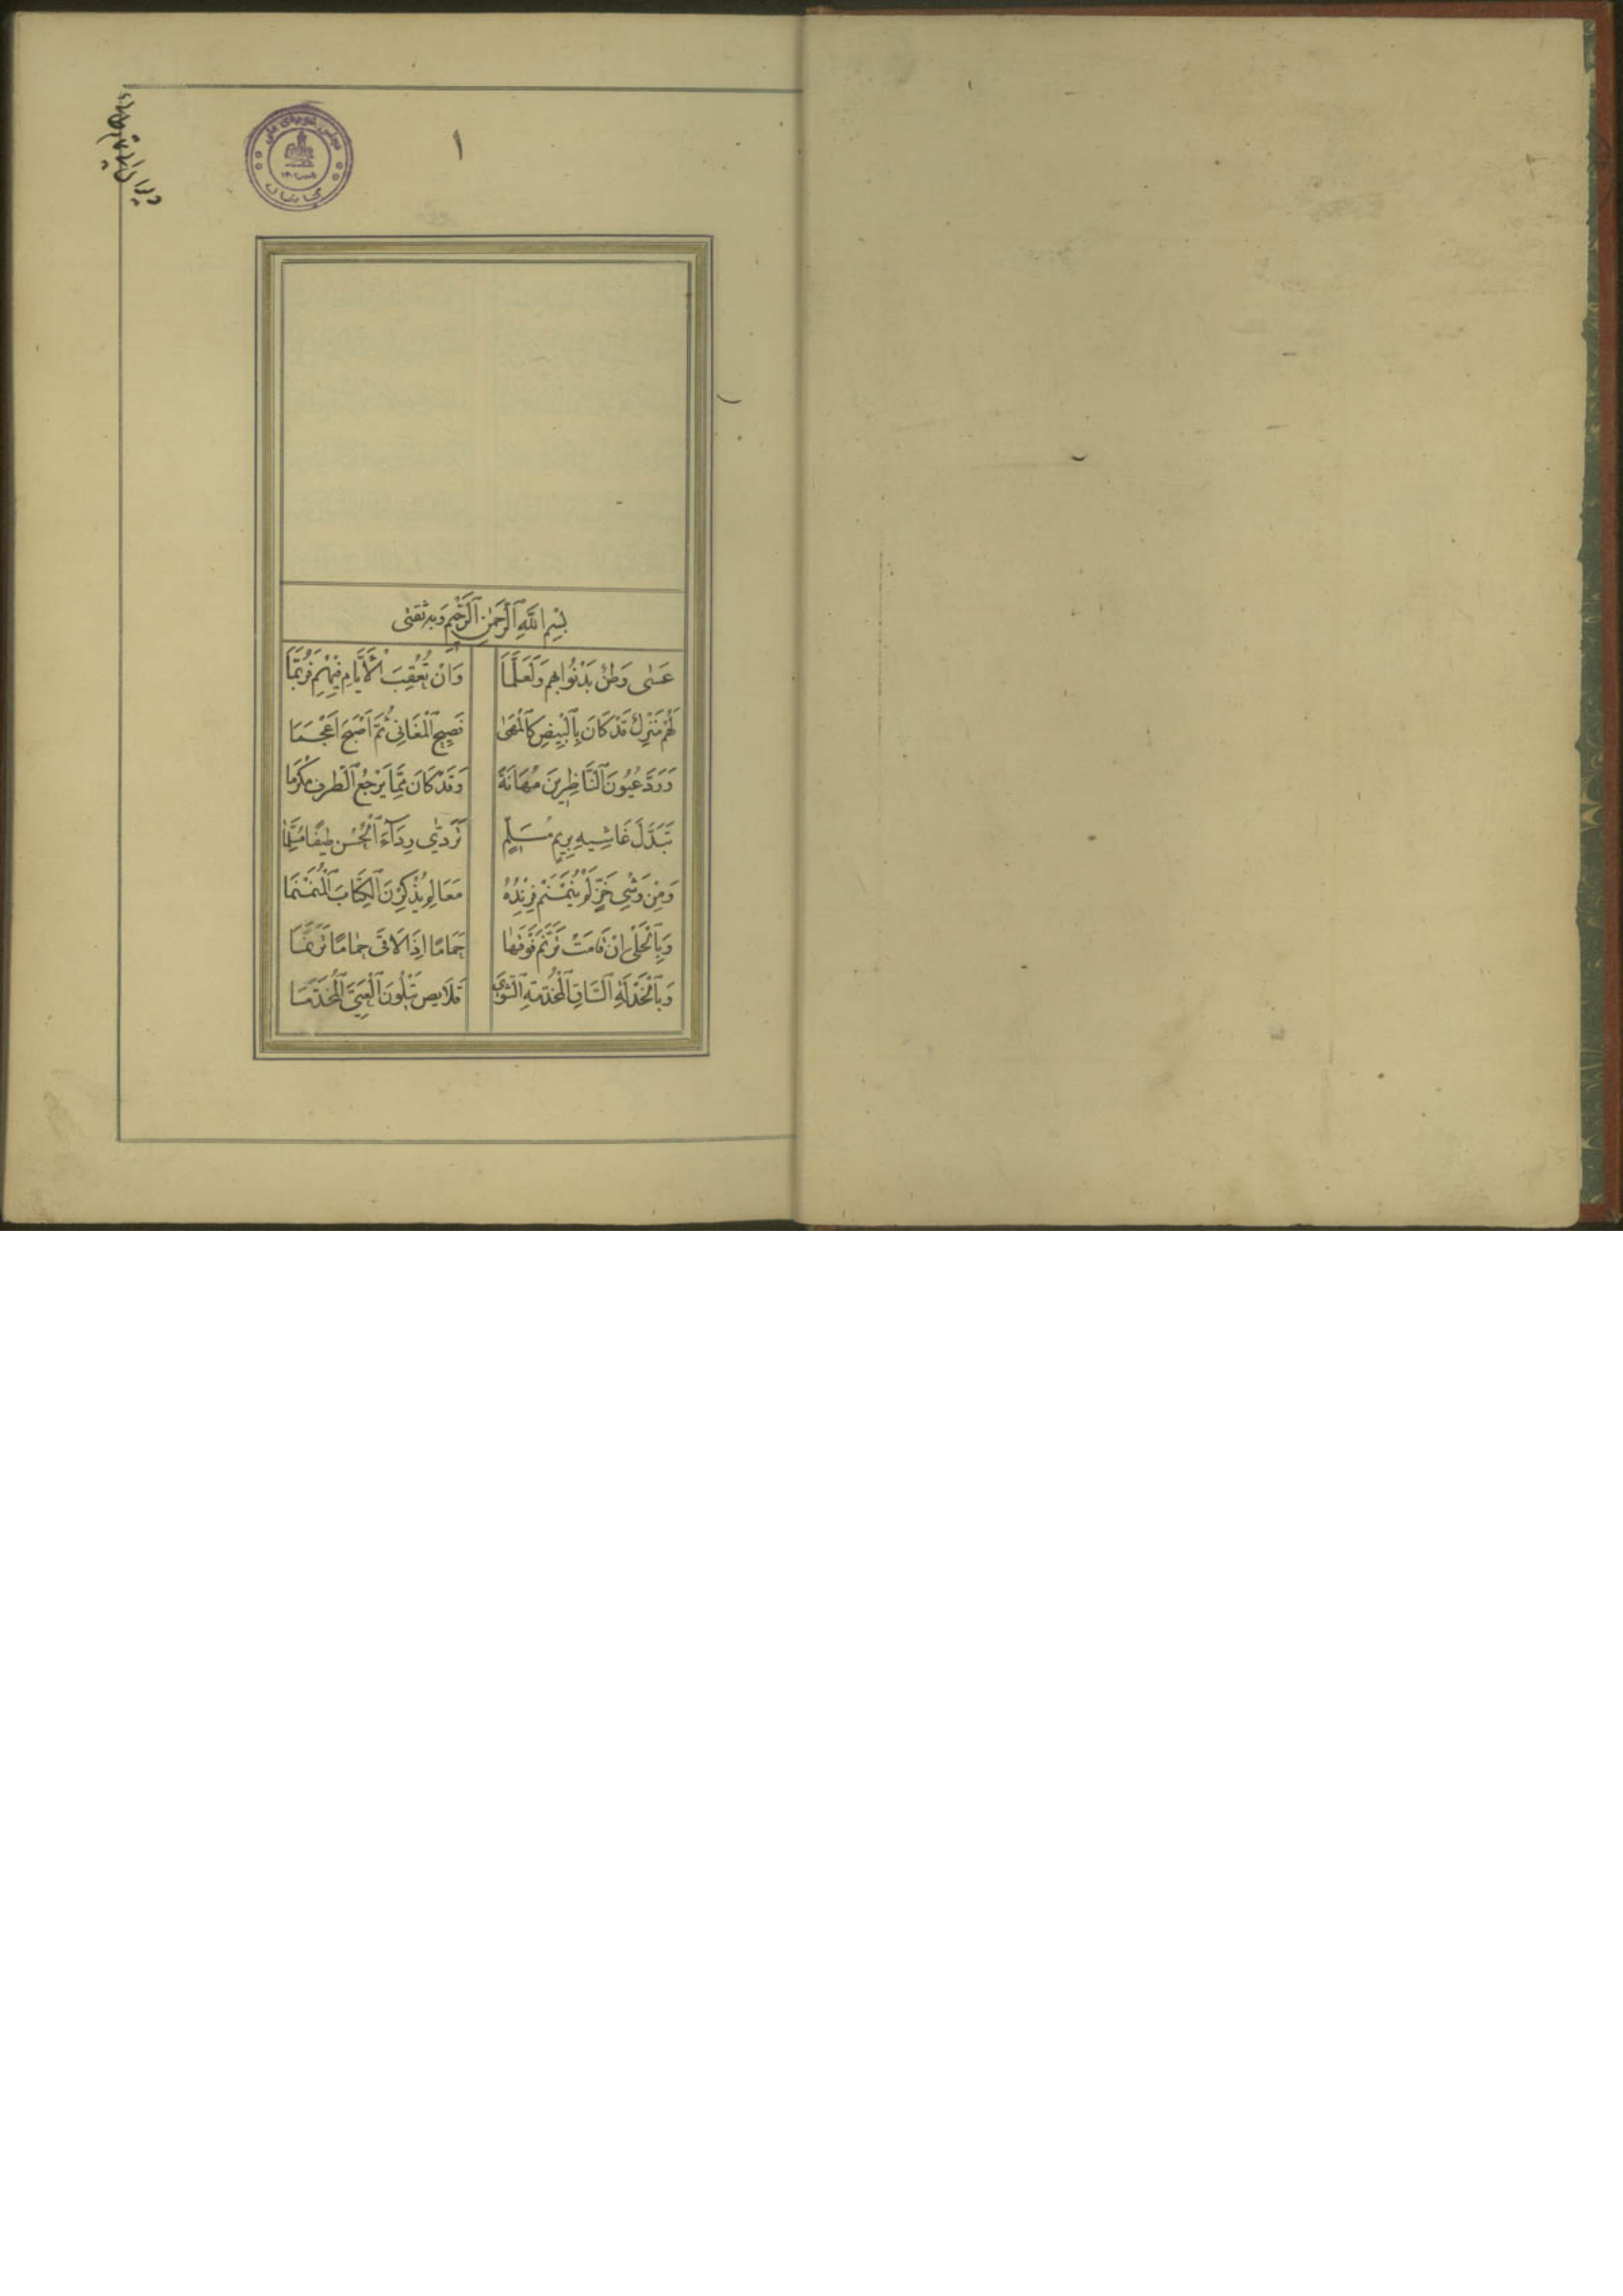 ١
بِسْمِ اللّٰهِ الرَّحْمٰنِ الرَّحِيْمِ وَبِهِ ثِقَتِى
عَسٰى وَطَنٌ يَدْنُوا بِهِم وَلَعَلَّمَا وَاَنْ تُعْقِبَ الْاَيَّامِ فِيْهِمِ فَرُبَّمَا
لَهُمْ مَنْزِلٌ قَدْ كَانَ بِالْبِيْضِ كَالْمَهٰى فَصِيْحِ الْمَغَانِى ثُمَّ اَصْبَحَ اَعْجَمَا
وَرَدَّ عُيُوُنَ النَّاظِرِيْنَ مُهَانَةً وَقَدْ كَانَ مِمَّا يَرْجِعُ الْطَرف مُكْرَما
تَبَدَّلَ غَاشِيهِ بِرِيمٍ مُسَلِّمٍ تَرَدّٰى رِدَآءَ الْحُسْنِ طَيفًا مُسَلِّمًا
وَمِنْ وَشْىِ خَزٍّ لَمْ يُنَمْنَمْ فِرِنْدُهُ مَعَالِمِ يُذْكِرْنَ الْكِتَابَ الْمُنَمْنَمَا
وَبِالْحَلْىِ اِنْ قَامَتْ تَرَنَّمَ فَوْقَهَا حَمَامًا اِذَا لَاقَى حَمَامًا تَرَنَّمَا
وَبِالْخَدْلَةِ السَّاقِ الْمُخَدَّمَةِ الشَّوٰى قَلَايِصِ يَتْلُوْنَ الْعَبِيَّ الْمُخَدَّمَا